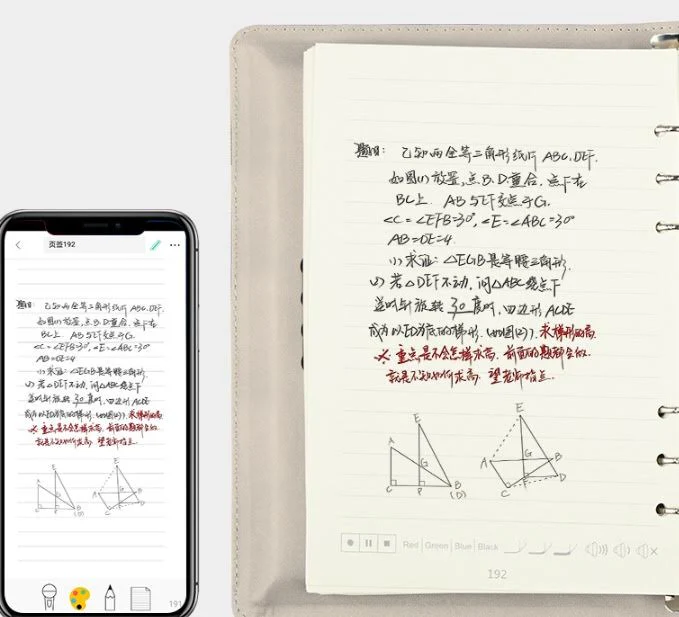 页签192
题目: 已知两全等三角形纸片 ABC, DEF,
如图(1)放置,点B.D重合,点F在
BC上 AB与EF交点于G.
∠C=∠EFB=30°, ∠E=∠ABC=30°
AB=DE=4
(1) 求证: △EGB是等腰三角形.
(2) 若△DEF不动, 问△ABC绕点F
逆时针旋转 30 度时, 四边形 ACDE
成为以ED为底的梯形. (如图(2)). 求梯形的高.
※ 重点是不会怎样求高. 前面的题都会做.
就是不知如何求高. 望老师指点.
A
E
G
C
F
B
(D)
E
A
G
B
C
F
D
191
题目: 已知两全等三角形纸片 ABC, DEF,
如图(1)放置,点B.D重合,点F在
BC上 AB与EF交点于G.
∠C=∠EFB=30°, ∠E=∠ABC=30°
AB=DE=4
(1) 求证: △EGB是等腰三角形.
(2) 若△DEF不动, 问△ABC绕点F
逆时针旋转 30 度时, 四边形 ACDE
成为以ED为底的梯形. (如图(2)). 求梯形的高.
※ 重点是不会怎样求高. 前面的题都会做.
就是不知如何求高. 望老师指点.
A
E
G
C
F
B
(D)
E
A
G
B
C
F
D
Red Green Blue Black
192